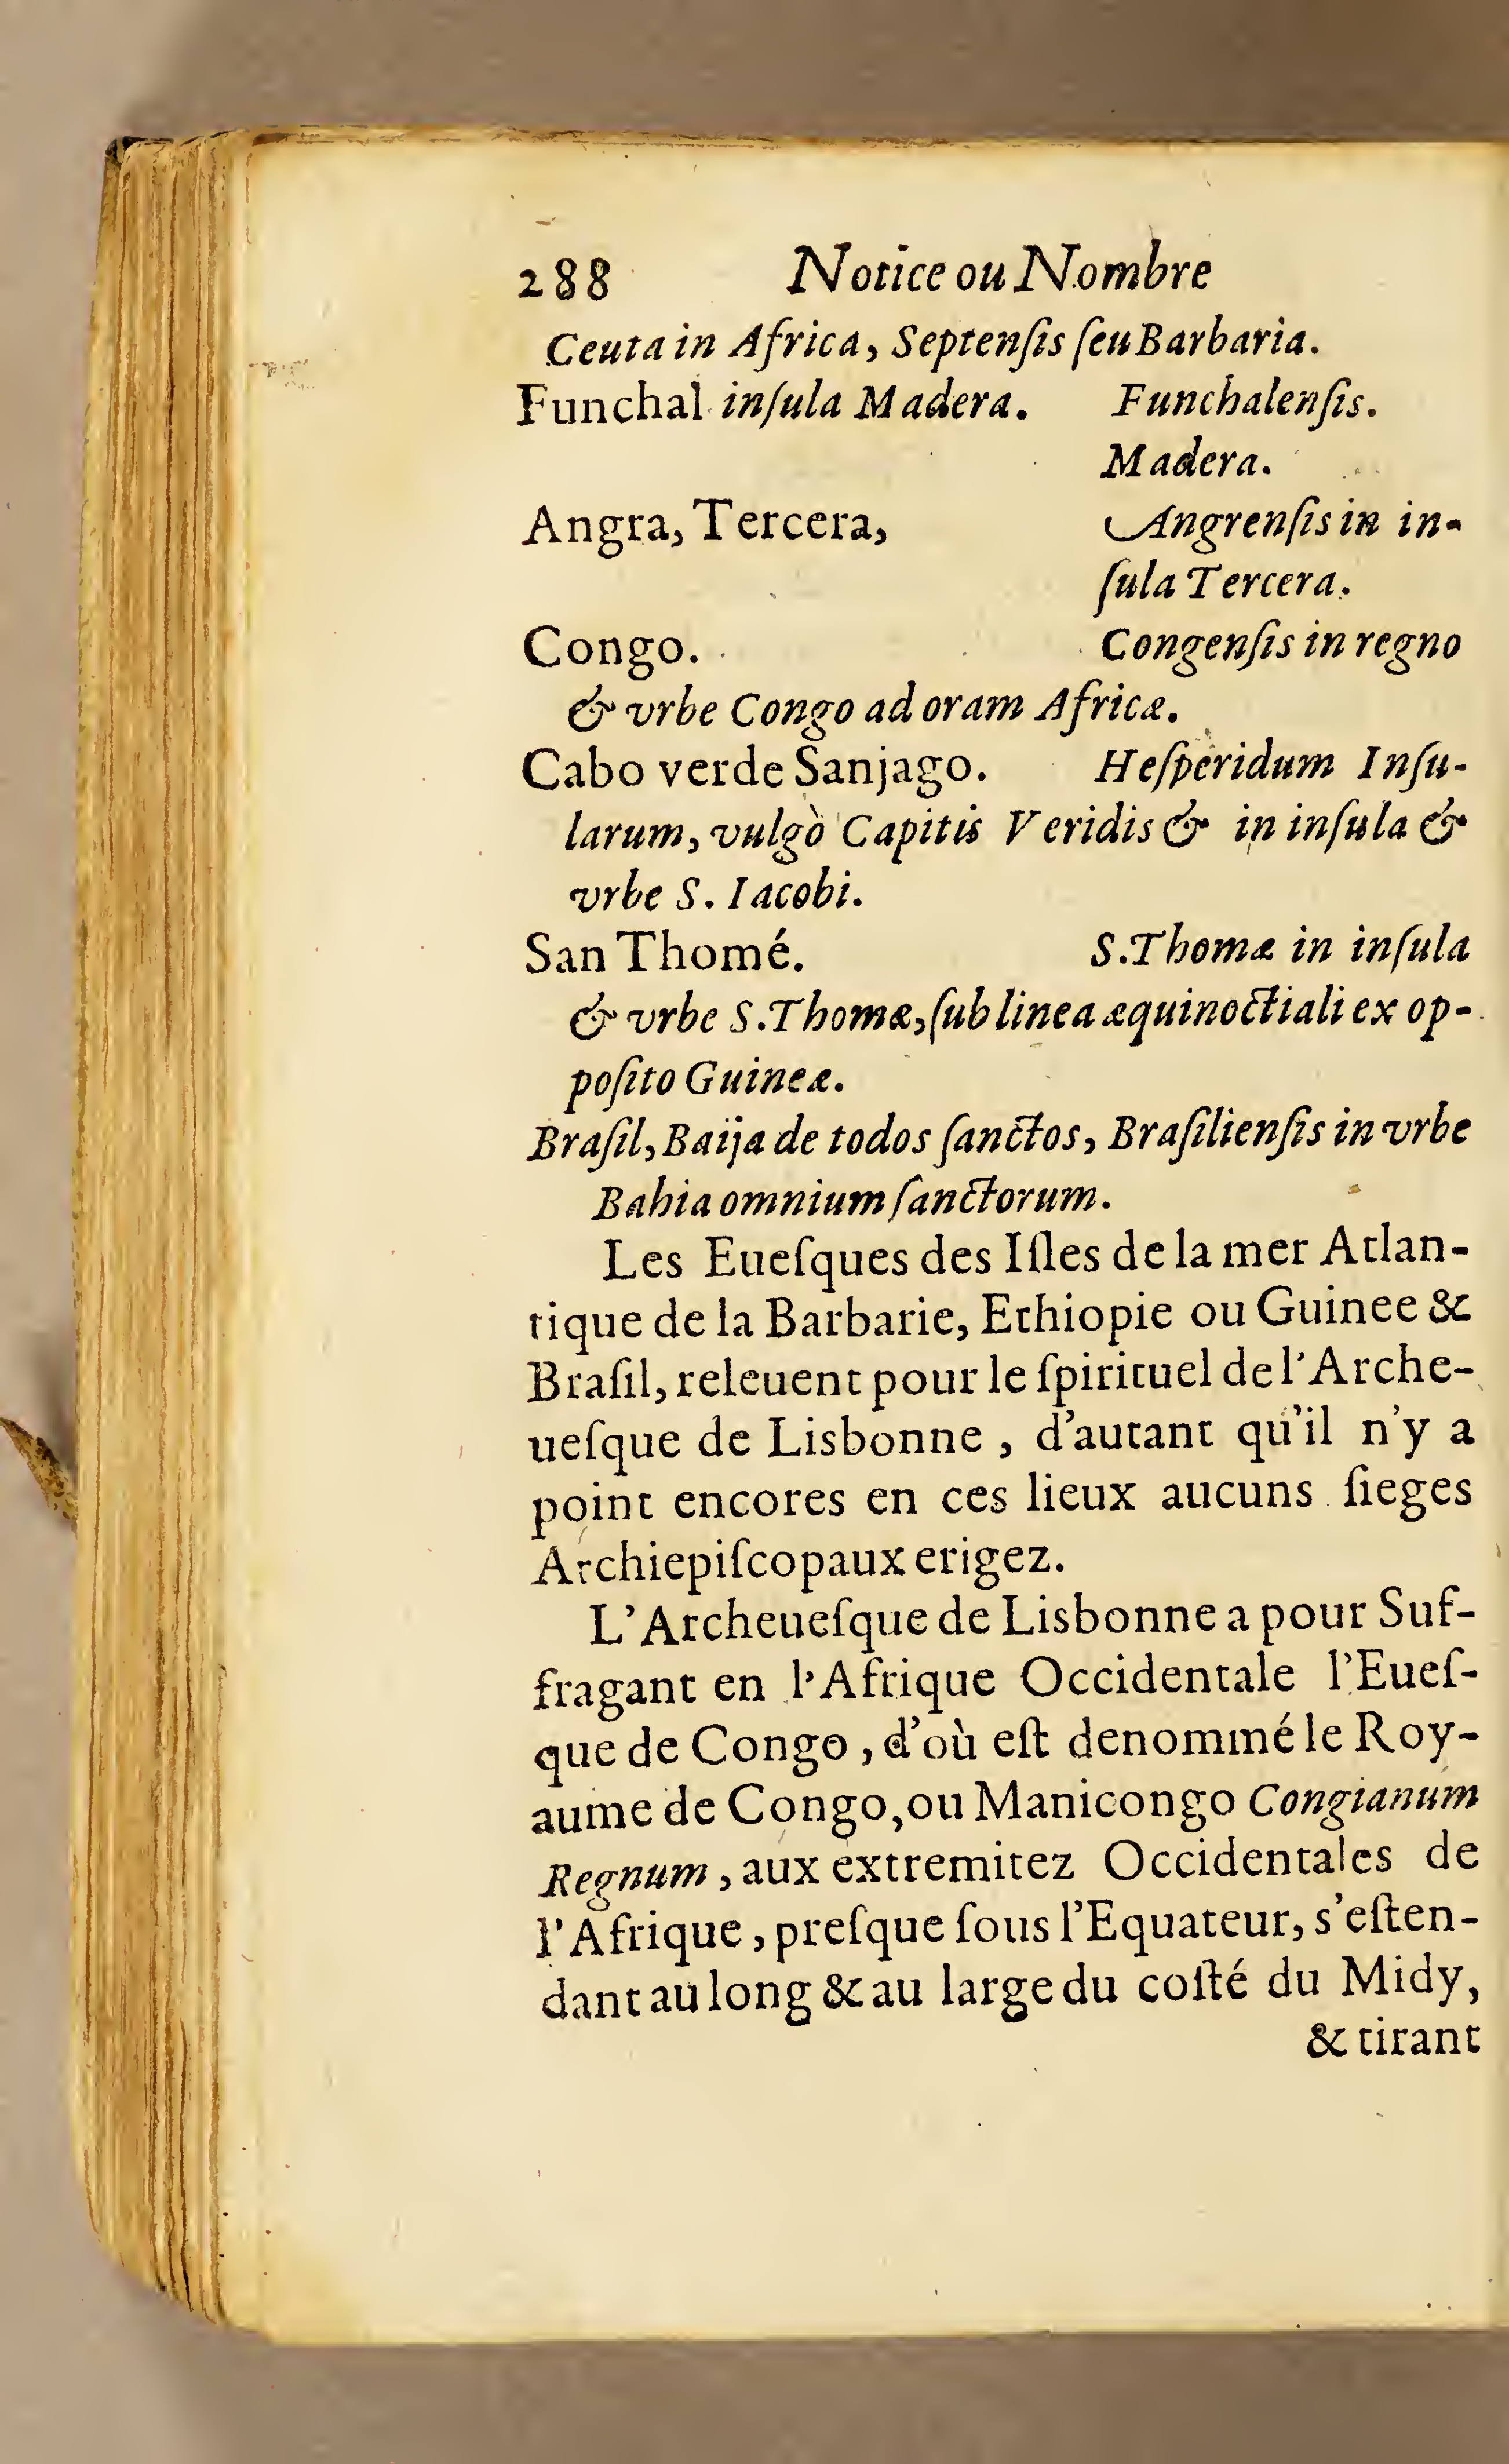 288 Notice ou Nombre
Ceuta in Africa, Septenſis ſeu Barbaria.
Funchal inſula Madera. Funchalenſis.
Madera.
Angra, Tercera, Angrenſis in in-
ſula Tercera.
Congo. Congenſis in regno
& vrbe Congo ad oram Africæ.
Cabo verde Sanjago. Heſperidum Inſu-
larum, vulgò Capitis Veridis & in inſula &
vrbe S. Iacobi.
San Thomé. S. Thomæ in inſula
& vrbe S. Thomæ, ſub linea æquinoctiali ex op-
poſito Guineæ.
Braſil, Baija de todos ſanctos, Braſilienſis in vrbe
Bahia omnium ſanctorum.
Les Eueſques des Iſles de la mer Atlan-
tique de la Barbarie, Ethiopie ou Guinee &
Braſil, releuent pour le ſpirituel de l'Arche-
ueſque de Lisbonne, d'autant qu'il n'y a
point encores en ces lieux aucuns ſieges
Archiepiſcopaux erigez.
L'Archeueſque de Lisbonne a pour Suf-
fragant en l'Afrique Occidentale l'Eueſ-
que de Congo, d'où eſt denommé le Roy-
aume de Congo, ou Manicongo Congianum
Regnum, aux extremitez Occidentales de
l'Afrique, preſque ſous l'Equateur, s'eſten-
dant au long & au large du coſté du Midy,
& tirant